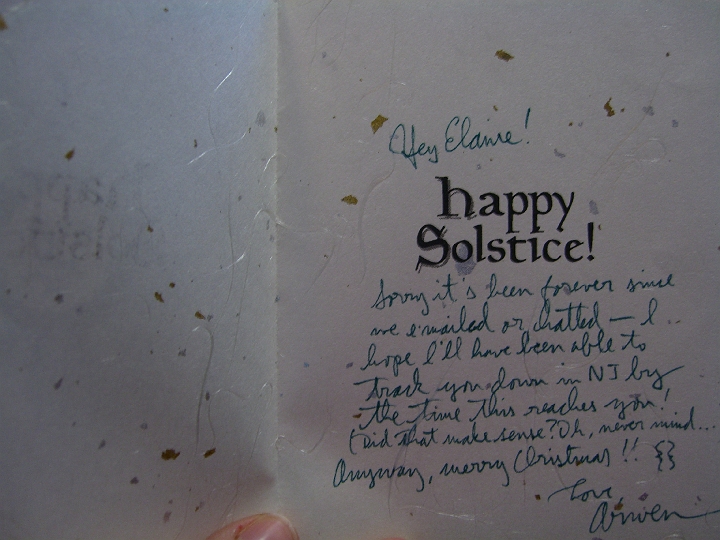 Hey Elaine!
happy
Solstice!
Sorry it's been forever since
we emailed or chatted — I
hope I'll have been able to
track you down in NJ by
the time this reaches you!
(Did that make sense? Oh, never mind...
Anyway, merry Christmas!! {}
Love,
Arwen